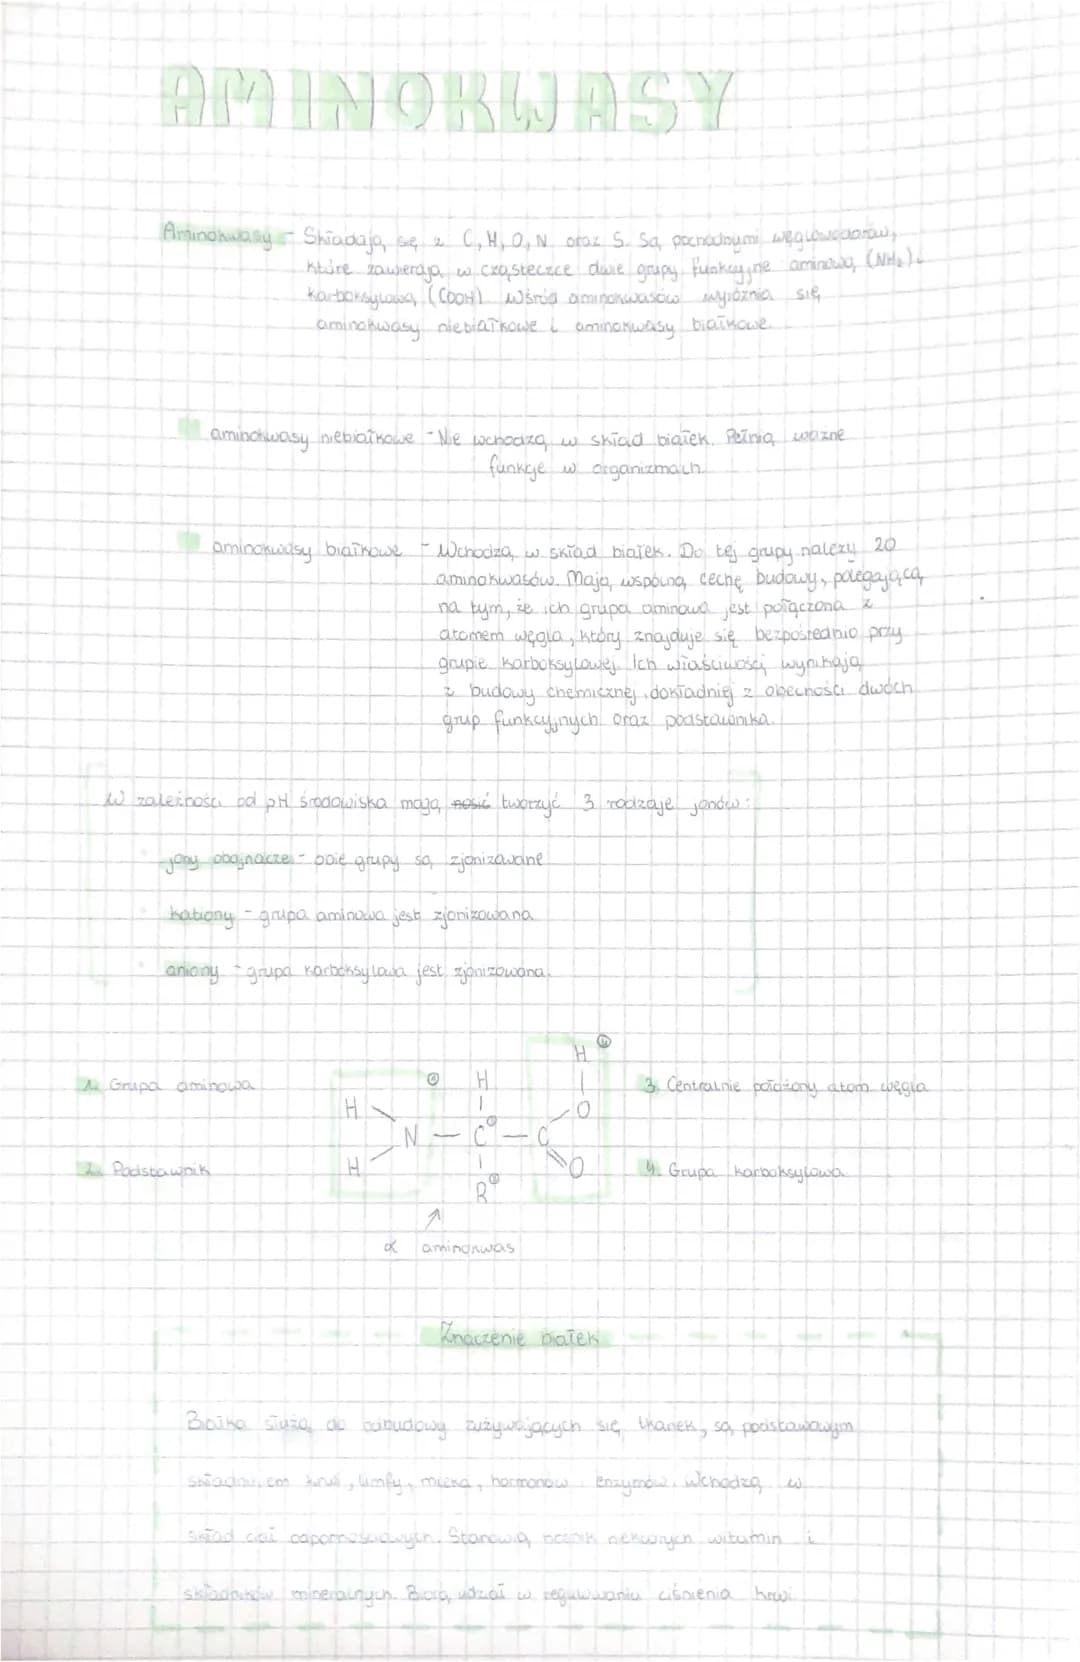 AMINOKWASY
Aminokwasy - Składają się z C, H, O, N oraz S. Są pochodnymi węglowodorów,
które zawierają w cząsteczce dwie grupy funkcyjne aminową (NH₂) i
karboksylową (COOH). Wśród aminokwasów wyróżnia się
aminokwasy niebiałkowe i aminokwasy białkowe.
aminokwasy niebiałkowe - Nie wchodzą w skład białek. Pełnią ważne
funkcje w organizmach.
aminokwasy białkowe - Wchodzą w skład białek. Do tej grupy należy 20
aminokwasów. Mają wspólną cechę budowy, polegającą
na tym, że ich grupa aminowa jest połączona z
atomem węgla, który znajduje się bezpośrednio przy
grupie karboksylowej. Ich właściwości wynikają
z budowy chemicznej, dokładniej z obecności dwóch
grup funkcyjnych oraz podstawnika.
W zależności od pH środowiska mają nosić tworzyć 3 rodzaje jonów:
jony obojnacze - obie grupy są zjonizowane
kationy - grupa aminowa jest zjonizowana
aniony - grupa karboksylowa jest zjonizowana.
H 4
1. Grupa aminowa H 3. Centralnie położony atom węgla
H O
N — C — C
2. Podstawnik H O 4. Grupa karboksylowa
R
α aminokwas
Znaczenie białek
Białka służą do odbudowy zużywających się tkanek, są podstawowym
składnikiem krwi, limfy, mleka, hormonów enzymów. Wchodzą w
skład ciał odpornościowych. Stanowią nośnik niektórych witamin i
składników mineralnych. Biorą udział w regulowaniu ciśnienia krwi.